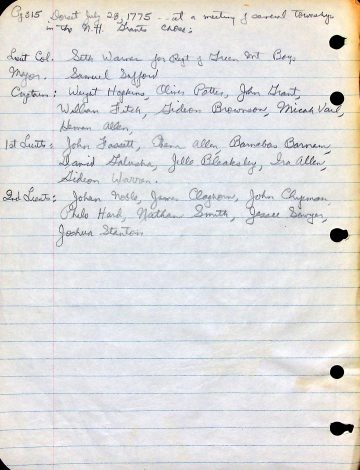 Pg 315 Dorset July 28, 1775 -- at a meeting of several townships
in the N.H. Grants chose:
Lieut Col. Seth Warner for Regt of Green Mt Boys
Major. Samuel Safford
Captains: Weight Hopkins, Oliver Potter, John Grant,
William Fitch, Gideon Brownson, Micah Vail,
Heman Allen,
1st Lieuts: John Fassett, Eben Allen, Barnabas Barnum,
David Galusha, Jille Bleaksley, Ira Allen,
Gideon Warren.
2nd Lieuts: Johan Noble, James Claghorn, John Chipman
Philo Hard, Nathan Smith, Jessee Sawyer,
Joshua Stanton